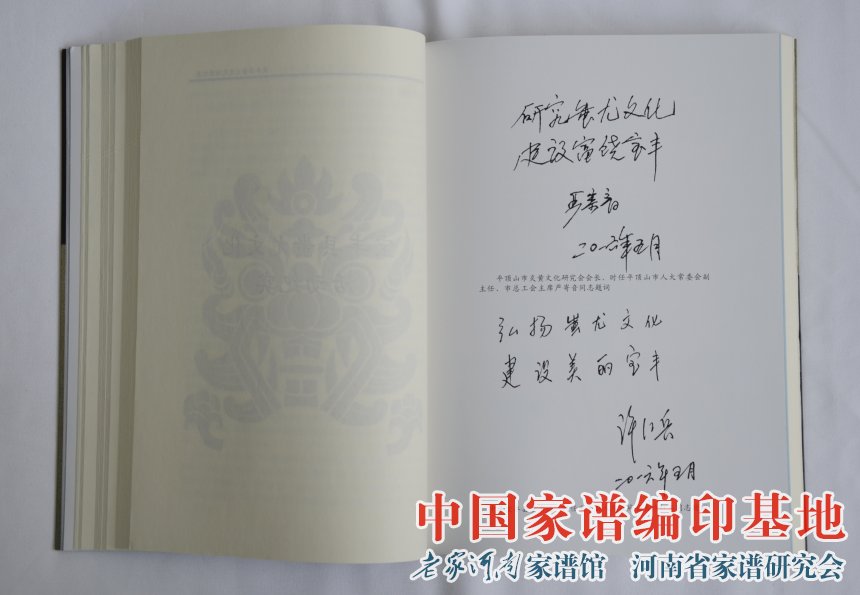 研究蚩尤文化
建设富饶宝丰
严寄音
二〇一六年五月
平顶山市炎黄文化研究会会长、时任平顶山市人大常委会副
主任、市总工会主席严寄音同志题词
弘扬蚩尤文化
建设美丽宝丰
二〇一六年五月
中国家谱编印基地
老家河南家谱馆 河南省家谱研究会